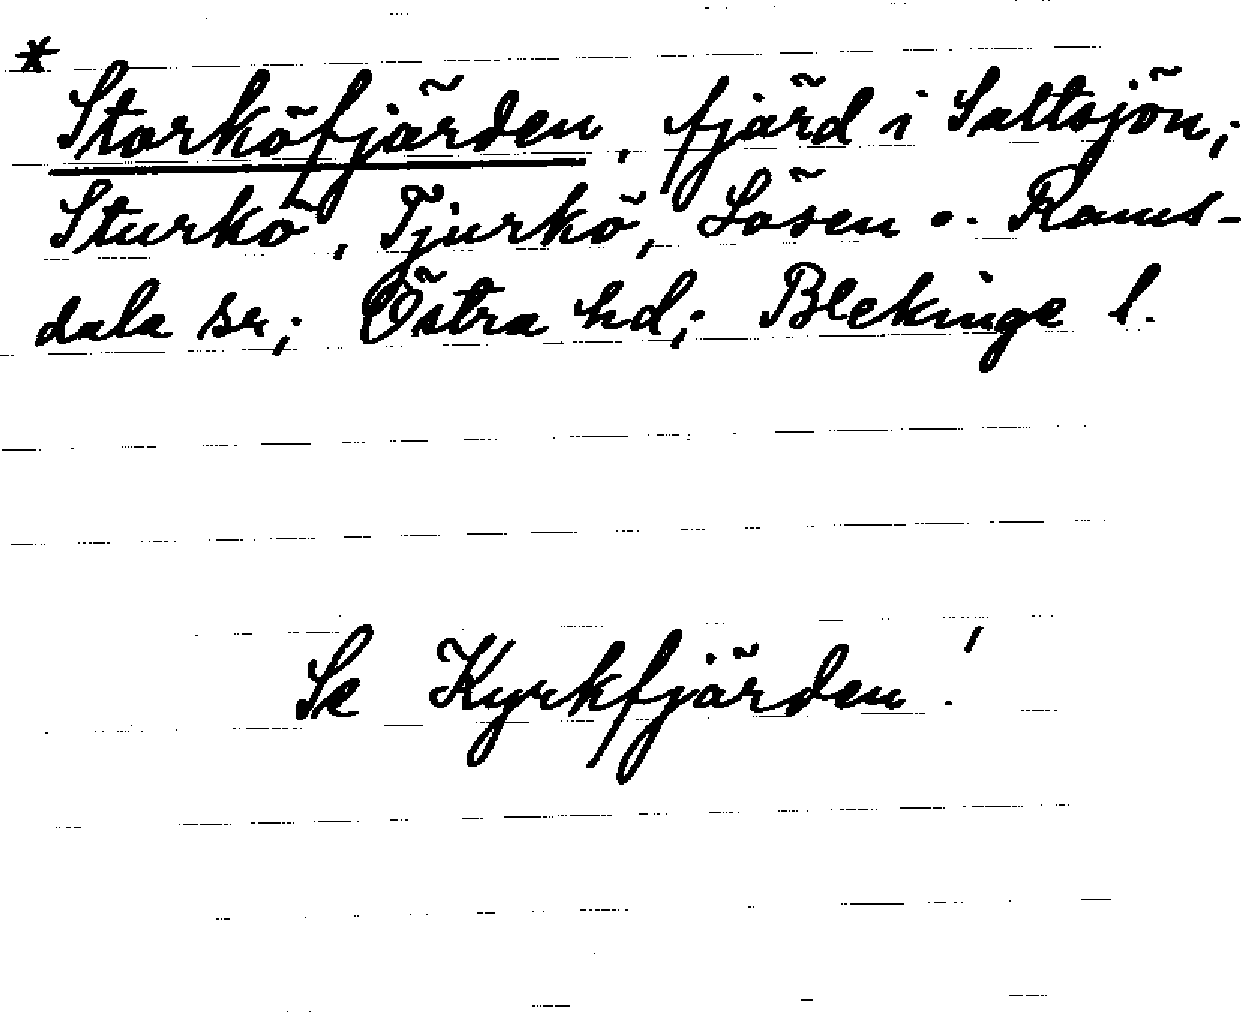 * Storköfjärden, fjärd i Saltsjön;
Sturkö, Tjurkö, Lösen o. Rams-
dala sn; Östra hd; Blekinge l.
Se Kyrkfjärden!